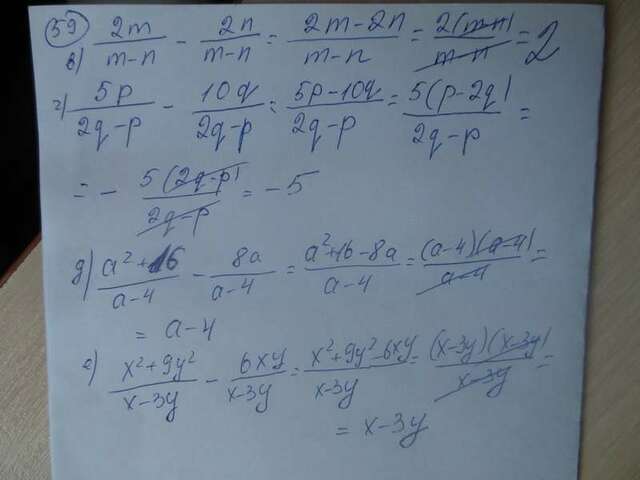 59
в) 2m/(m-n) - 2n/(m-n) = (2m-2n)/(m-n) = 2(m-n)/(m-n) = 2
г) 5p/(2q-p) - 10q/(2q-p) = (5p-10q)/(2q-p) = 5(p-2q)/(2q-p) =
= - 5(2q-p)/(2q-p) = -5
д) (a²+16)/(a-4) - 8a/(a-4) = (a²+16-8a)/(a-4) = (a-4)(a-4)/(a-4) =
= a-4
е) (x²+9y²)/(x-3y) - 6xy/(x-3y) = (x²+9y²-6xy)/(x-3y) = (x-3y)(x-3y)/(x-3y) =
= x-3y